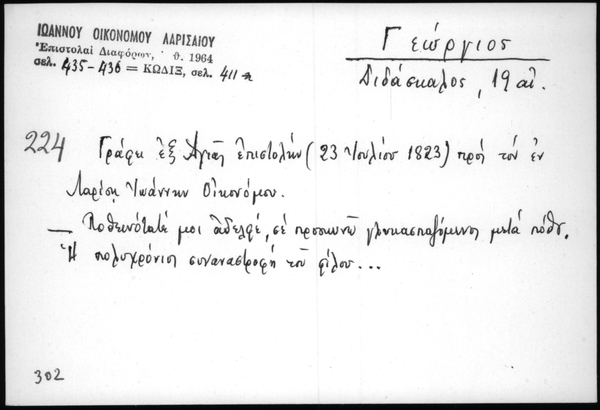 ΙΩΑΝΝΟΥ ΟΙΚΟΝΟΜΟΥ ΛΑΡΙΣΑΙΟΥ
Ἐπιστολαὶ Διαφόρων, θ. 1964
σελ. 435-436 = ΚΩΔΙΞ, σελ. 411
Γεώργιος
Διδάσκαλος, 19 αἰ.
224 Γράφει ἐξ Ἁγιᾶς ἐπιστολὴν (23 Ἰουλίου 1823) πρὸς τὸν ἐν
Λαρίσῃ Ἰωάννην Οἰκονόμου.
— Ποθεινότατέ μοι ἀδελφέ, σὲ προσκυνῶ γλυκασπαζόμενος μετὰ πόθου.
Ἡ πολυχρόνιος συναναστροφὴ τοῦ φίλου...
302